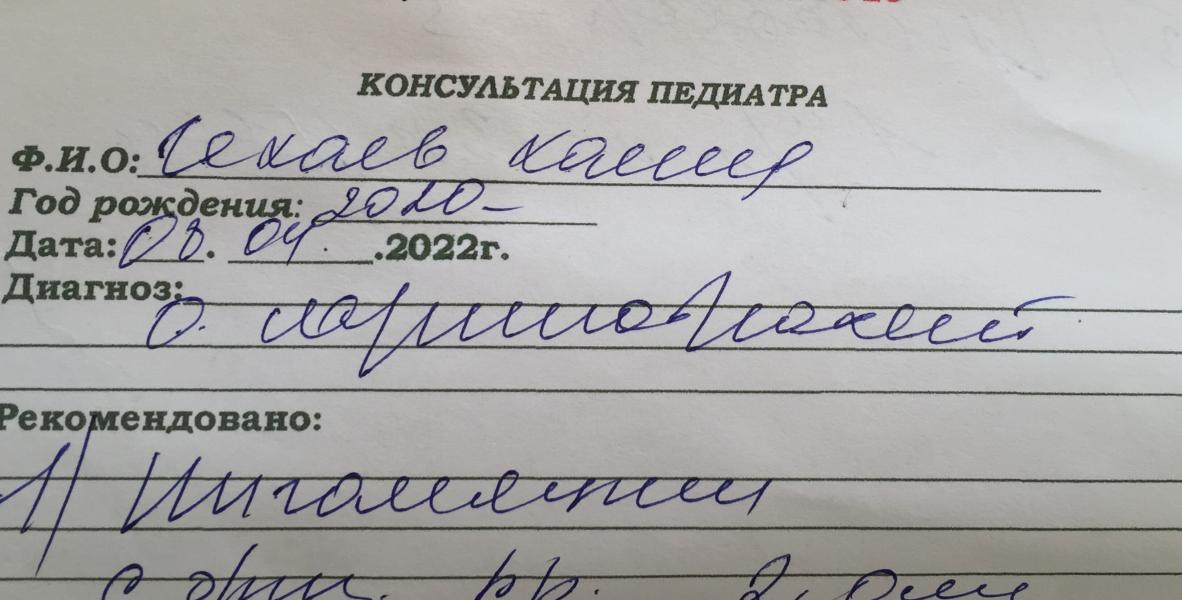 КОНСУЛЬТАЦИЯ ПЕДИАТРА
Ф.И.О:
Год рождения: 2020
Дата: 08. 04. .2022г.
Диагноз:
О. ларинготрахеит
Рекомендовано:
1) Ингаляции
с физ. рр. 2,0мл